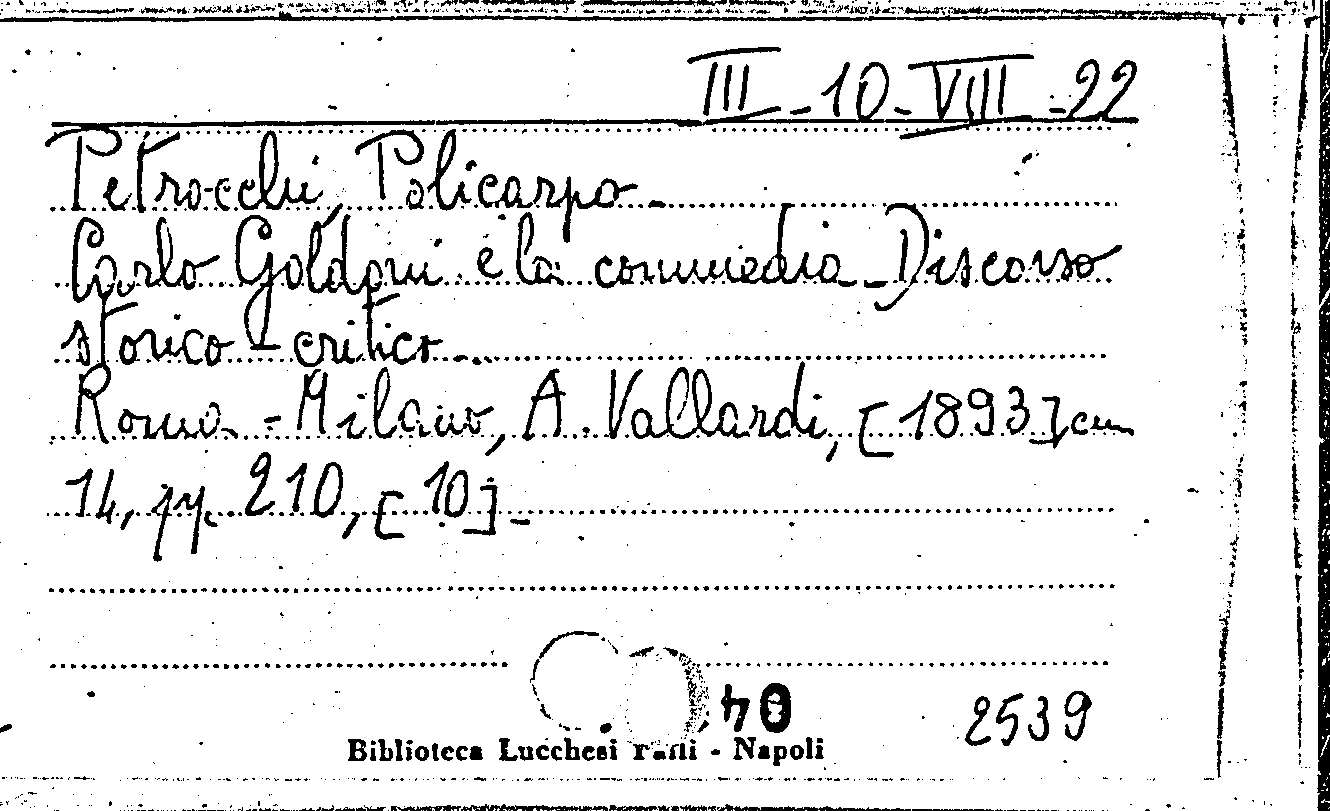 III-10-VIII-22
Petrocchi, Policarpo-
Carlo Goldoni e la commedia-Discorso
storico-critico-
Roma-Milano, A. Vallardi, [1893] cm
14, pp. 210, [10]-
40
2539
Biblioteca Lucchesi Palli - Napoli